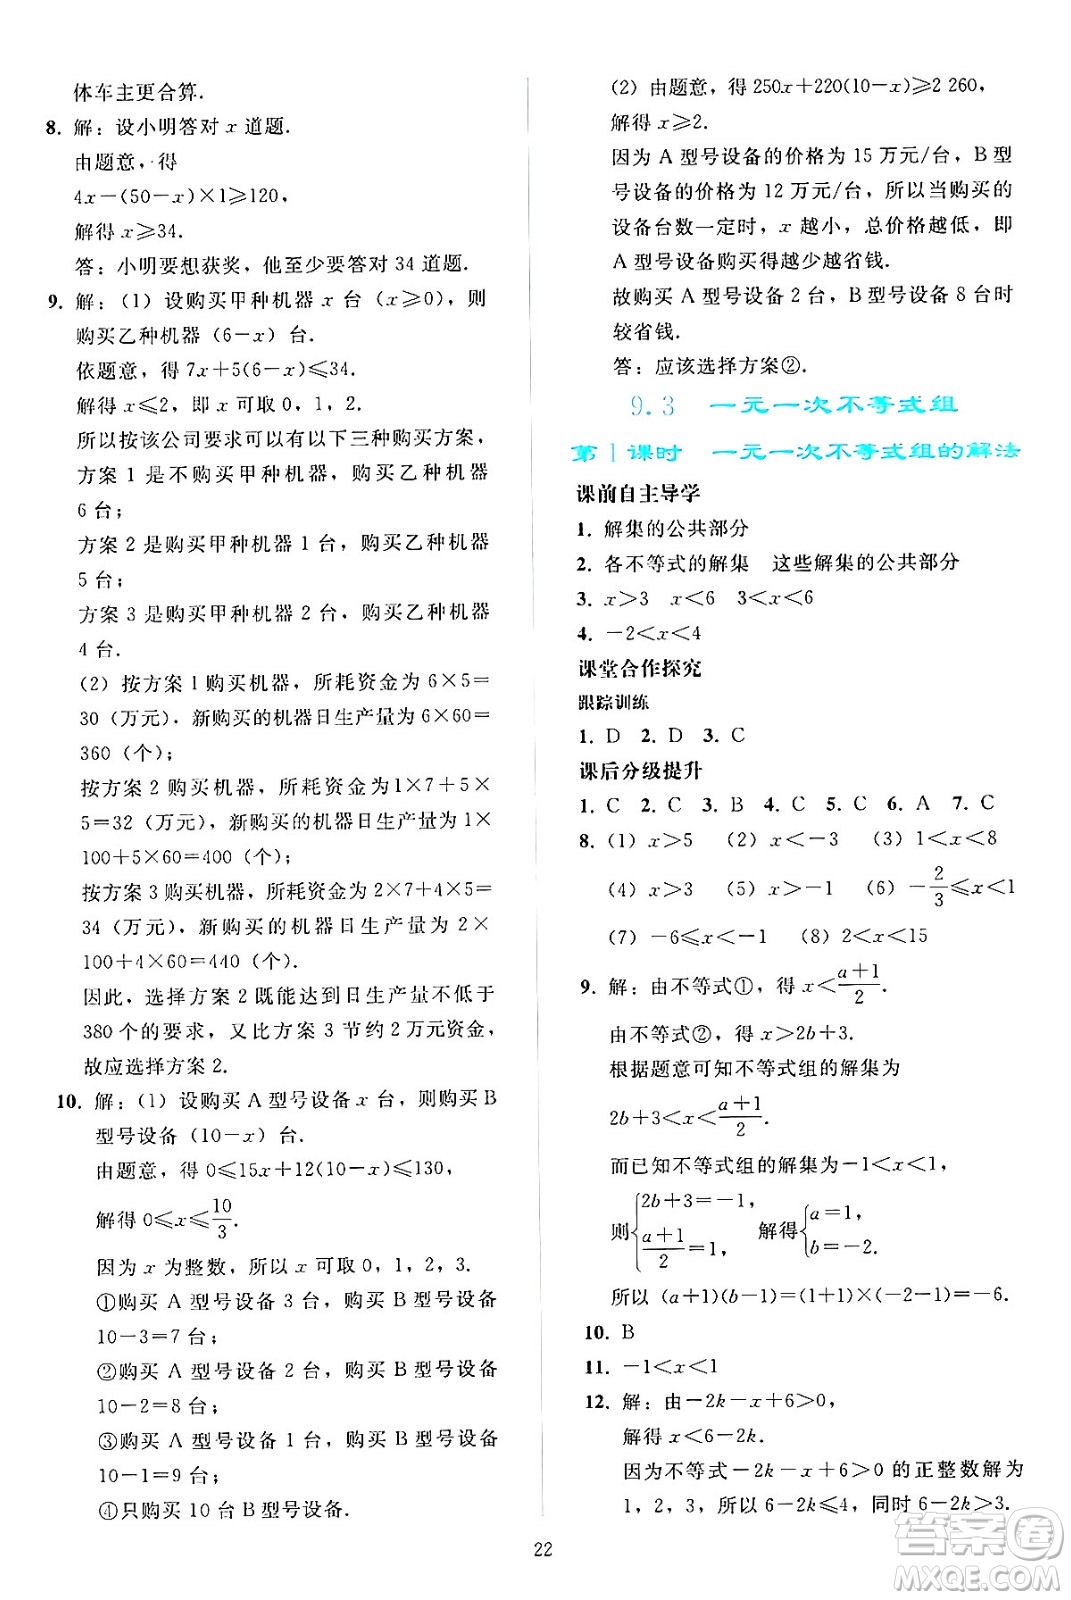 体车主更合算.
8. 解：设小明答对 x 道题.
由题意，得
4x－(50－x)×1≥120，
解得 x≥34.
答：小明要想获奖，他至少要答对 34 道题.
9. 解：(1) 设购买甲种机器 x 台（x≥0），则
购买乙种机器（6－x）台.
依题意，得 7x＋5(6－x)≤34.
解得 x≤2，即 x 可取 0，1，2.
所以按该公司要求可以有以下三种购买方案，
方案 1 是不购买甲种机器，购买乙种机器
6 台；
方案 2 是购买甲种机器 1 台，购买乙种机器
5 台；
方案 3 是购买甲种机器 2 台，购买乙种机器
4 台.
(2) 按方案 1 购买机器，所耗资金为 6×5＝
30（万元），新购买的机器日生产量为 6×60＝
360（个）；
按方案 2 购买机器，所耗资金为 1×7＋5×
5＝32（万元），新购买的机器日生产量为 1×
100＋5×60＝400（个）；
按方案 3 购买机器，所耗资金为 2×7＋4×5＝
34（万元），新购买的机器日生产量为 2×
100＋4×60＝440（个）.
因此，选择方案 2 既能达到日生产量不低于
380 个的要求，又比方案 3 节约 2 万元资金，
故应选择方案 2.
10. 解：(1) 设购买 A 型号设备 x 台，则购买 B
型号设备（10－x）台.
由题意，得 0≤15x＋12(10－x)≤130，
解得 0≤x≤10/3.
因为 x 为整数，所以 x 可取 0，1，2，3.
①购买 A 型号设备 3 台，购买 B 型号设备
10－3＝7 台；
②购买 A 型号设备 2 台，购买 B 型号设备
10－2＝8 台；
③购买 A 型号设备 1 台，购买 B 型号设备
10－1＝9 台；
④只购买 10 台 B 型号设备.
(2) 由题意，得 250x＋220(10－x)≥2 260，
解得 x≥2.
因为 A 型号设备的价格为 15 万元/台，B 型
号设备的价格为 12 万元/台，所以当购买的
设备台数一定时，x 越小，总价格越低，即
A 型号设备购买得越少越省钱.
故购买 A 型号设备 2 台，B 型号设备 8 台时
较省钱.
答：应该选择方案②.
9.3 一元一次不等式组
第 1 课时 一元一次不等式组的解法
课前自主导学
1. 解集的公共部分
2. 各不等式的解集 这些解集的公共部分
3. x＞3 x＜6 3＜x＜6
4. －2＜x＜4
课堂合作探究
跟踪训练
1. D 2. D 3. C
课后分级提升
1. C 2. C 3. B 4. C 5. C 6. A 7. C
8. (1) x＞5 (2) x＜－3 (3) 1＜x＜8
(4) x＞3 (5) x＞－1 (6) －2/3≤x＜1
(7) －6≤x＜－1 (8) 2＜x＜15
9. 解：由不等式①，得 x＜(a＋1)/2.
由不等式②，得 x＞2b＋3.
根据题意可知不等式组的解集为
2b＋3＜x＜(a＋1)/2.
而已知不等式组的解集为－1＜x＜1，
则{2b＋3＝－1，(a＋1)/2＝1， 解得{a＝1，b＝－2.
所以 (a＋1)(b－1)＝(1＋1)×(－2－1)＝－6.
10. B
11. －1＜x＜1
12. 解：由－2k－x＋6＞0，
解得 x＜6－2k.
因为不等式－2k－x＋6＞0 的正整数解为
1，2，3，所以 6－2k≤4，同时 6－2k＞3.
22
答案圈
MXQE.COM